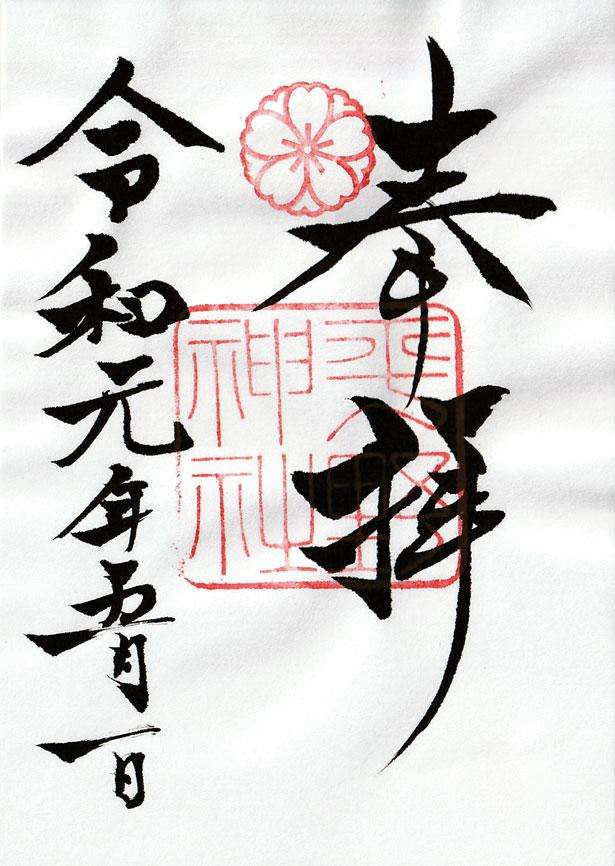 奉拝
野
神社
令和元年五月一日